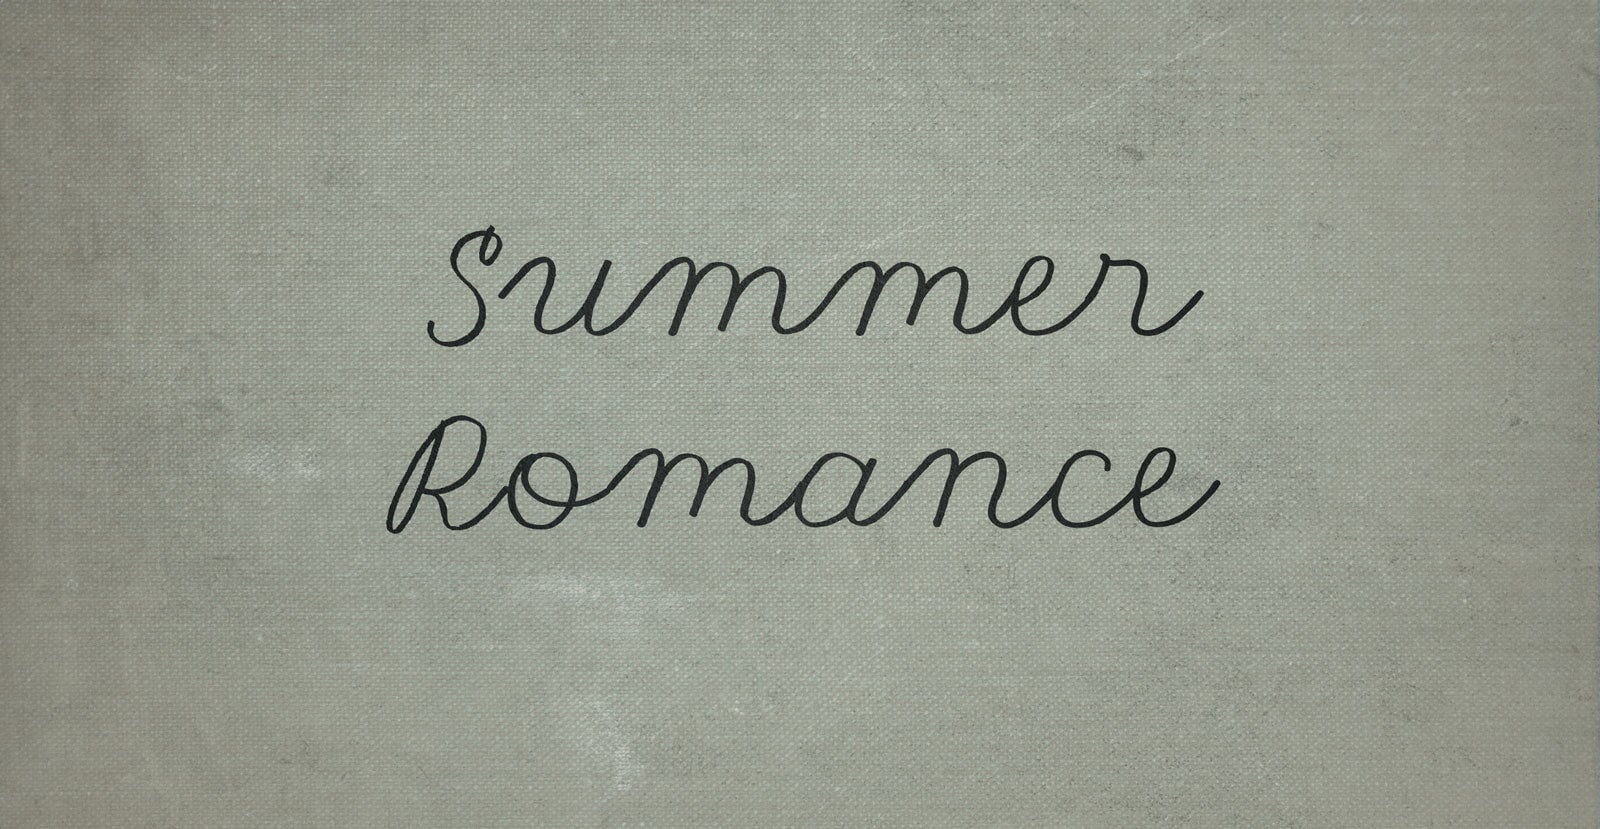 Summer
Romance